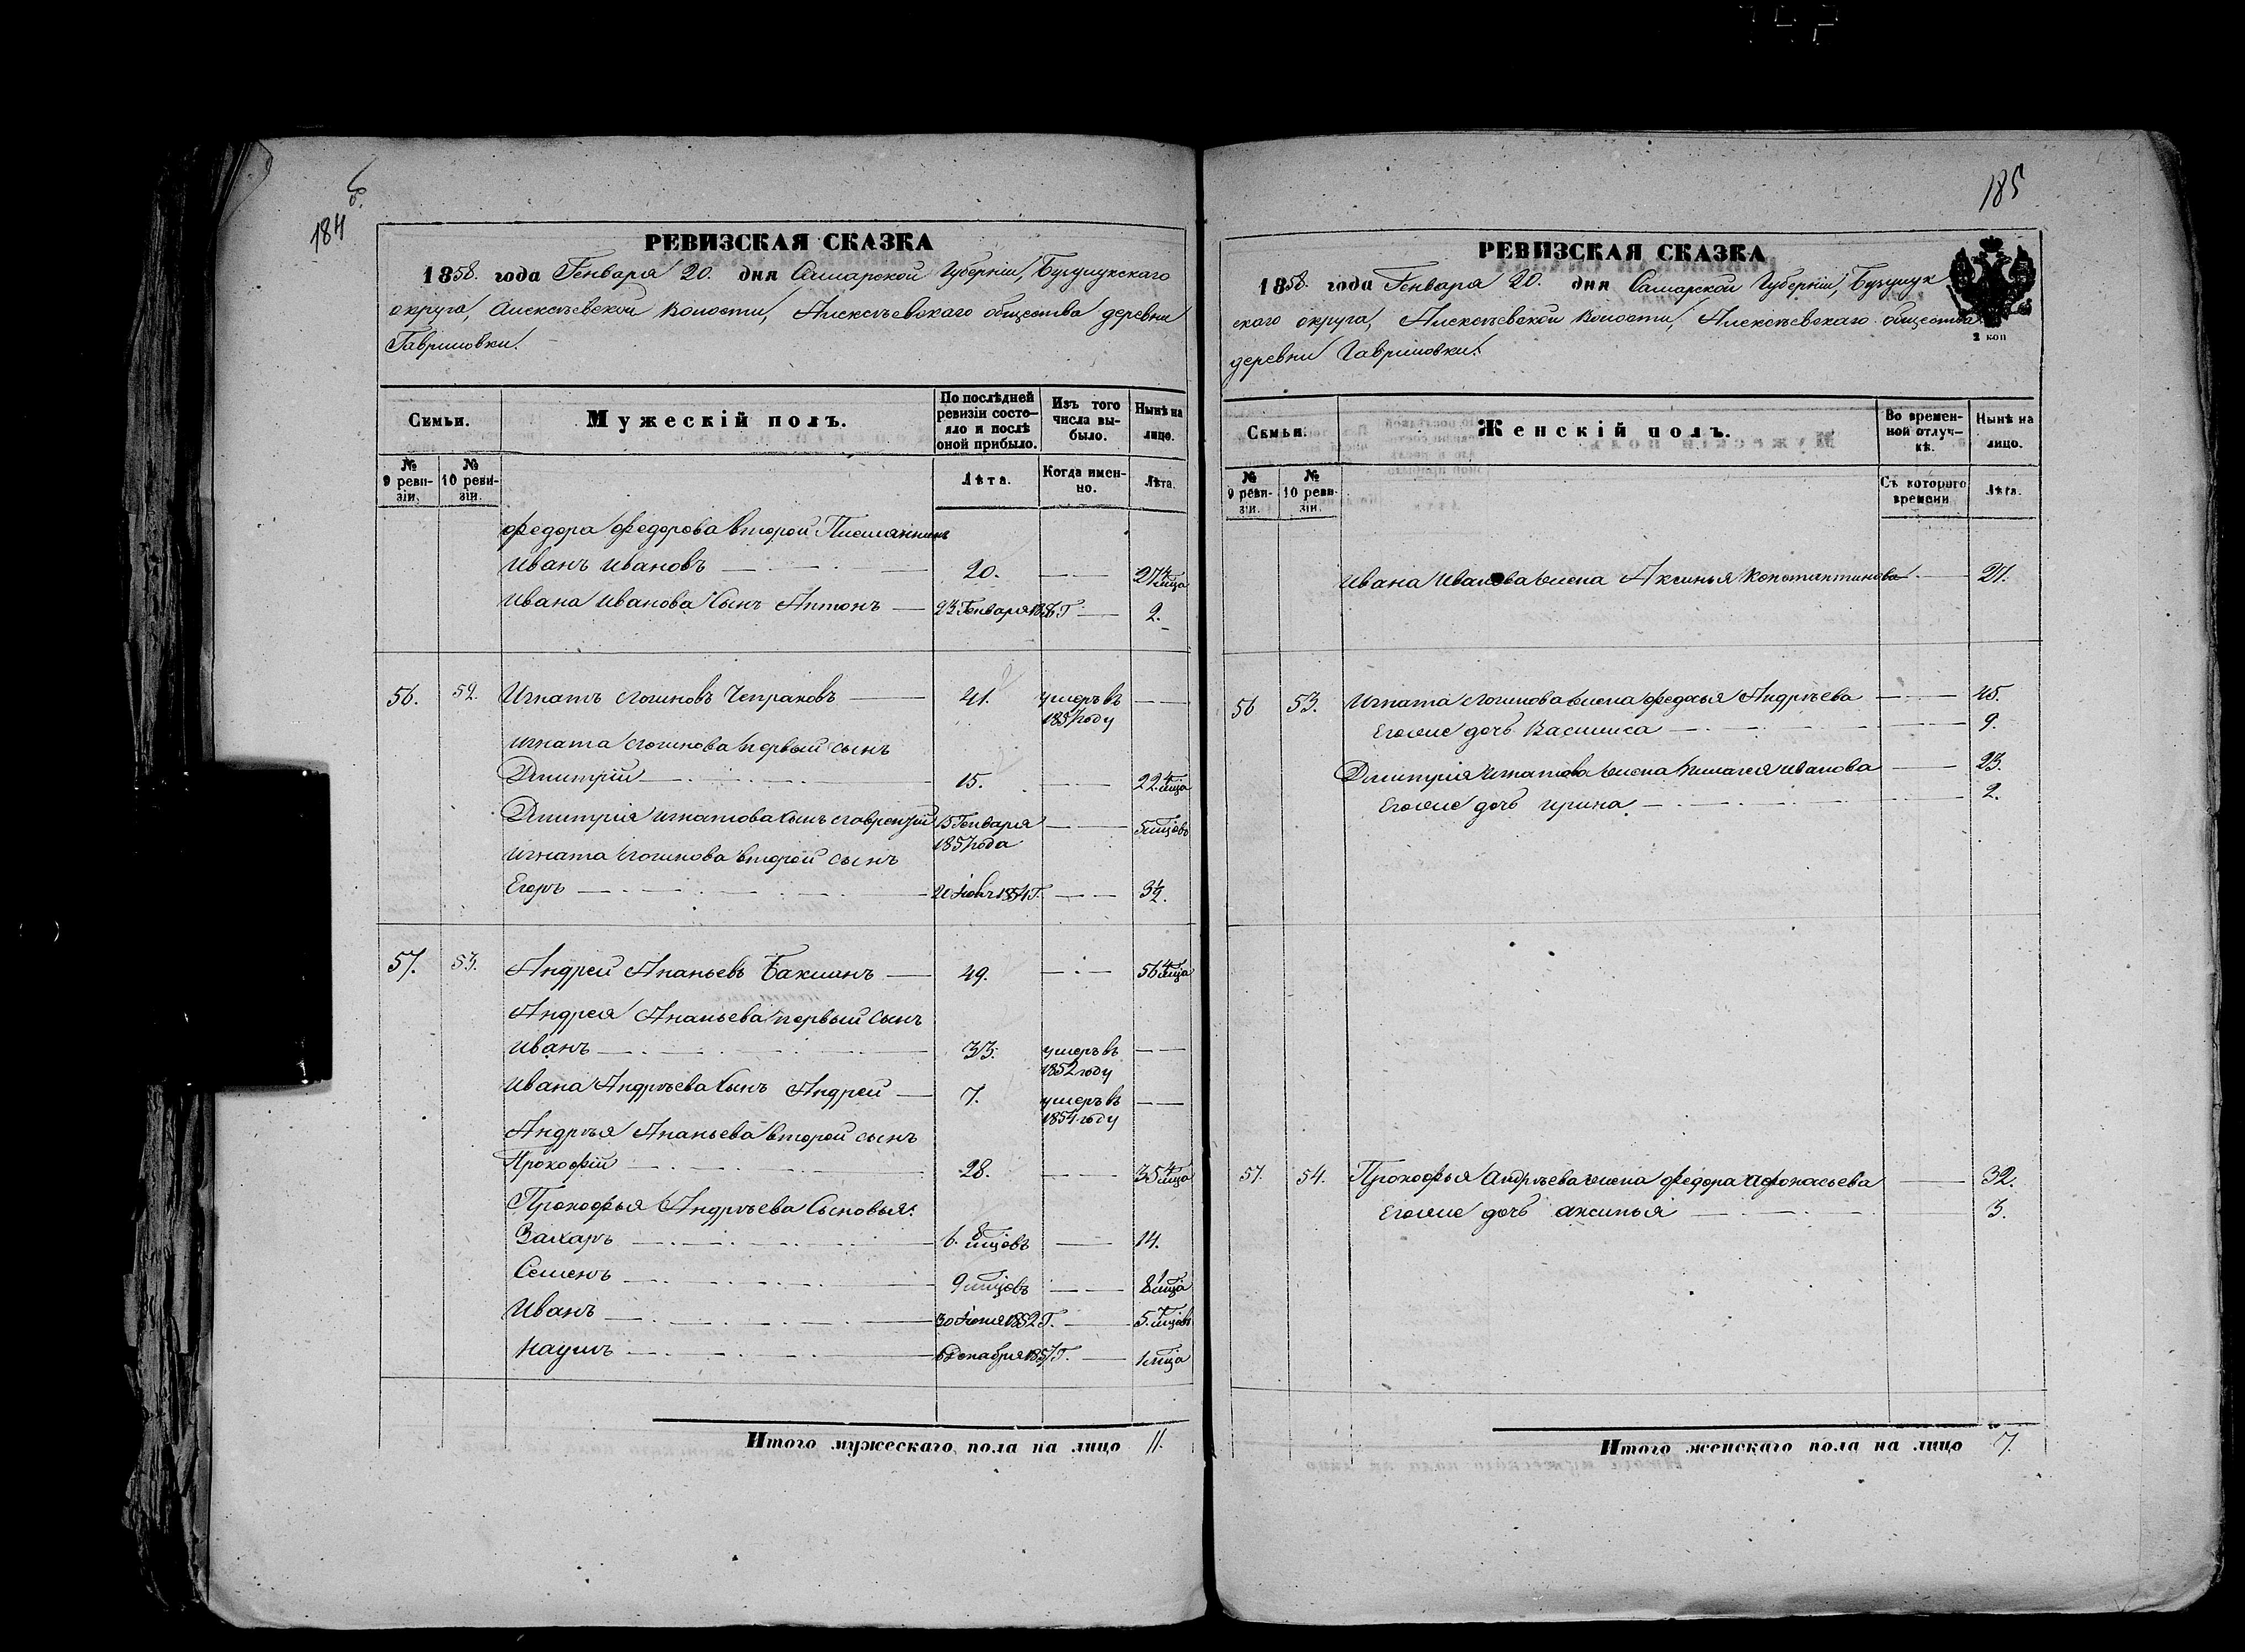 184
РЕВИЗСКАЯ СКАЗКА
1858. года Генваря 20. дня Самарской Губерніи, Бузулукскаго
округа, Алексѣевской Волости, Алексѣевскаго общества деревни
Гавриловки.
Семьи.
Мужескій полъ.
По послѣдней ревизіи состояло и послѣ оной прибыло.
Изъ того числа выбыло.
Нынѣ на лицо.
№ 9 ревизіи.
№ 10 ревизіи.
Лѣта.
Когда именно.
Лѣта.
Федора Федорова второй Племянникъ
Иванъ Ивановъ 20. 27
Ивана Иванова Сынъ Антонъ 2.
56. 52. Игнатъ Логиновъ Чепраковъ 41. умеръ въ
1857 году
Игната Логинова первый сынъ
Дмитрій 15. 22
Дмитрія Игнатова Сынъ Лаврентій 15 Генваря
1857 года
Игната Логинова второй сынъ
Егоръ 1854 Г. 3½.
57. 53. Андрей Ананьевъ 49. 56
Андрея Ананьева первый Сынъ
Иванъ 33. умеръ въ
1852 году
Ивана Андрѣева Сынъ Андрей 7. умеръ въ
1854 году
Андрѣя Ананьева второй сынъ
Прокофій 28. 35
Прокофья Андрѣева Сыновья:
Захаръ 6. 14.
Семенъ 9 мцовъ 8
Иванъ 1852 Г. 5.
Наумъ 6 Декабря 1857 Г. 1 мца
Итого мужескаго пола на лицо 11.
185
РЕВИЗСКАЯ СКАЗКА
1858. года Генваря 20. дня Самарской Губерніи, Бузулук
скаго округа, Алексѣевской Волости, Алексѣевскаго общества
деревни Гавриловки.
2 коп
Семьи.
Женскій полъ.
Во временной отлучкѣ.
Нынѣ на лицо.
№ 9 ревизіи.
№ 10 ревизіи.
Съ котораго времени
Лѣта.
Ивана Иванова жена Аксинья Константинова 27.
56 53. Игната Логинова жена Федосья Андрѣева 45.
Его же дочь Василиса 9.
Дмитрія Игнатова жена Пелагея Иванова 23.
Его же дочь Ирина 2.
57. 54. Прокофья Андрѣева жена Федора Афонасьева 32.
Его же дочь Аксинья 3.
Итого женскаго пола на лицо 7.